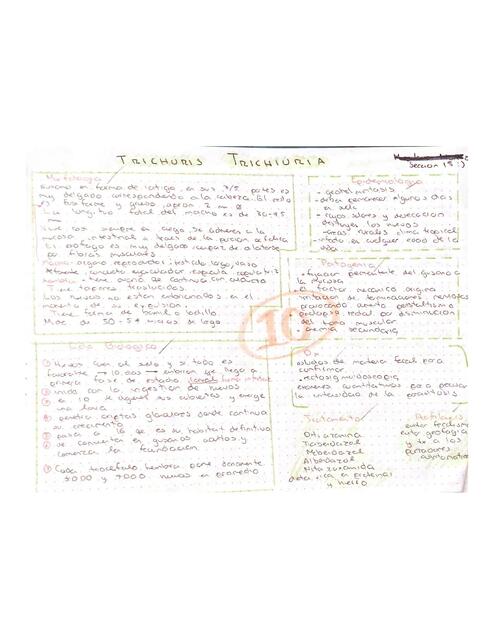 TRICHURIS TRICHIURIA
Sección 19 :)
Morfología
Gusano en forma de latigo, en sus 3/5 partes es
muy delgado correspondiendo a la cabeza. El resto
es fusiforme y grueso, aprox 2 mm
La longitud total del macho es de 30-45
mm
Vive casi siempre en ciego, se adhiere a la
mucosa intestinal a traves de la porcion cefalica
El esofago es muy delgado, capaz de
por fibras musculares
Macho: organo reproductor: testiculo largo, vaso
deferente, conducto eyaculador, espicula
Hembra: tiene
Tiene tapones traslucidos.
Los huevos no estan embrionados en el
momento de su expulsion.
Tiene forma de barril o bolillo.
Mide de 50-54 micras de largo
Epidemiología
- geohelmintiasis
- deben permanecer algunos dias
en suelo
- rayos solares y desecacion
destruyen los huevos
- areas rurales clima tropical
- infeccion en cualquier edad de la
vida
Patogenia
• Fijacion permanente del gusano a
la mucosa
• El factor mecanico origina
irritacion de terminaciones nerviosas
provocando aumento peristaltismo
prolapso rectal por disminución
del tono muscular
- anemia secundaria
10
Ciclo Biologico
① Huevos caen al suelo y si todo es
favorable → 10 dias → embrion que llega a
primera fase de estadio larval
② inicia con la ingestion de huevos
③ en ID se digieren sus cubiertas y emerge
una larva
④ penetra criptas glandulares donde continua
su crecimiento
⑤ pasa a IG es su habitat definitivo
⑥ se convierten en gusanos adultos y
comienza la fecundacion
⑦ Cada tricocefalo hembra pone diariamente
5000 y 7000 huevos en promedio
Dx
estudios de materia fecal para
confirmar
- rectosigmoidoscopia
examenes cuantitativos para precisar
la intensidad de la parasitosis
Tratamiento
Tiabendazol
Mebendazol
Albendazol
Nitazoxanida
dieta rica en proteinas
y hierro
Profilaxis
evitar fecalismo
evitar geofagia
y a los
portadores
asintomaticos